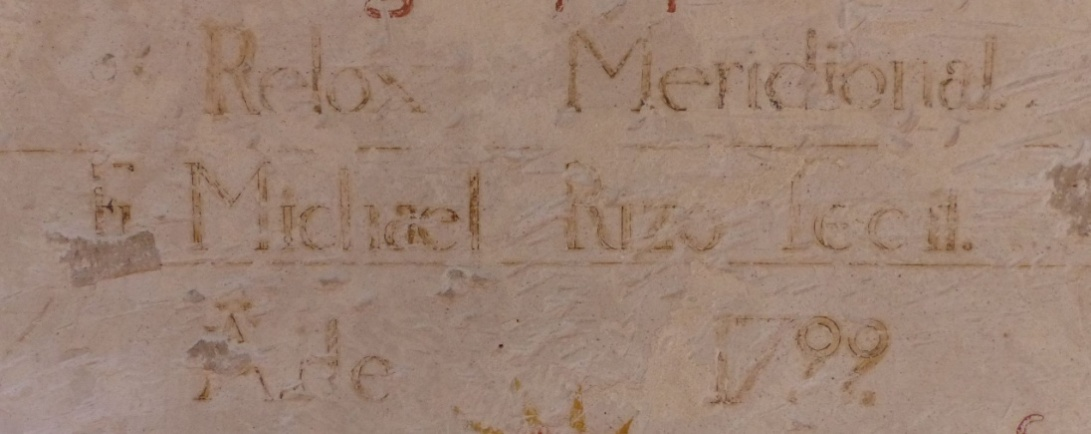 Relox Meridional.
Fr. Michael Rizo Fecit.
Año de 1799.